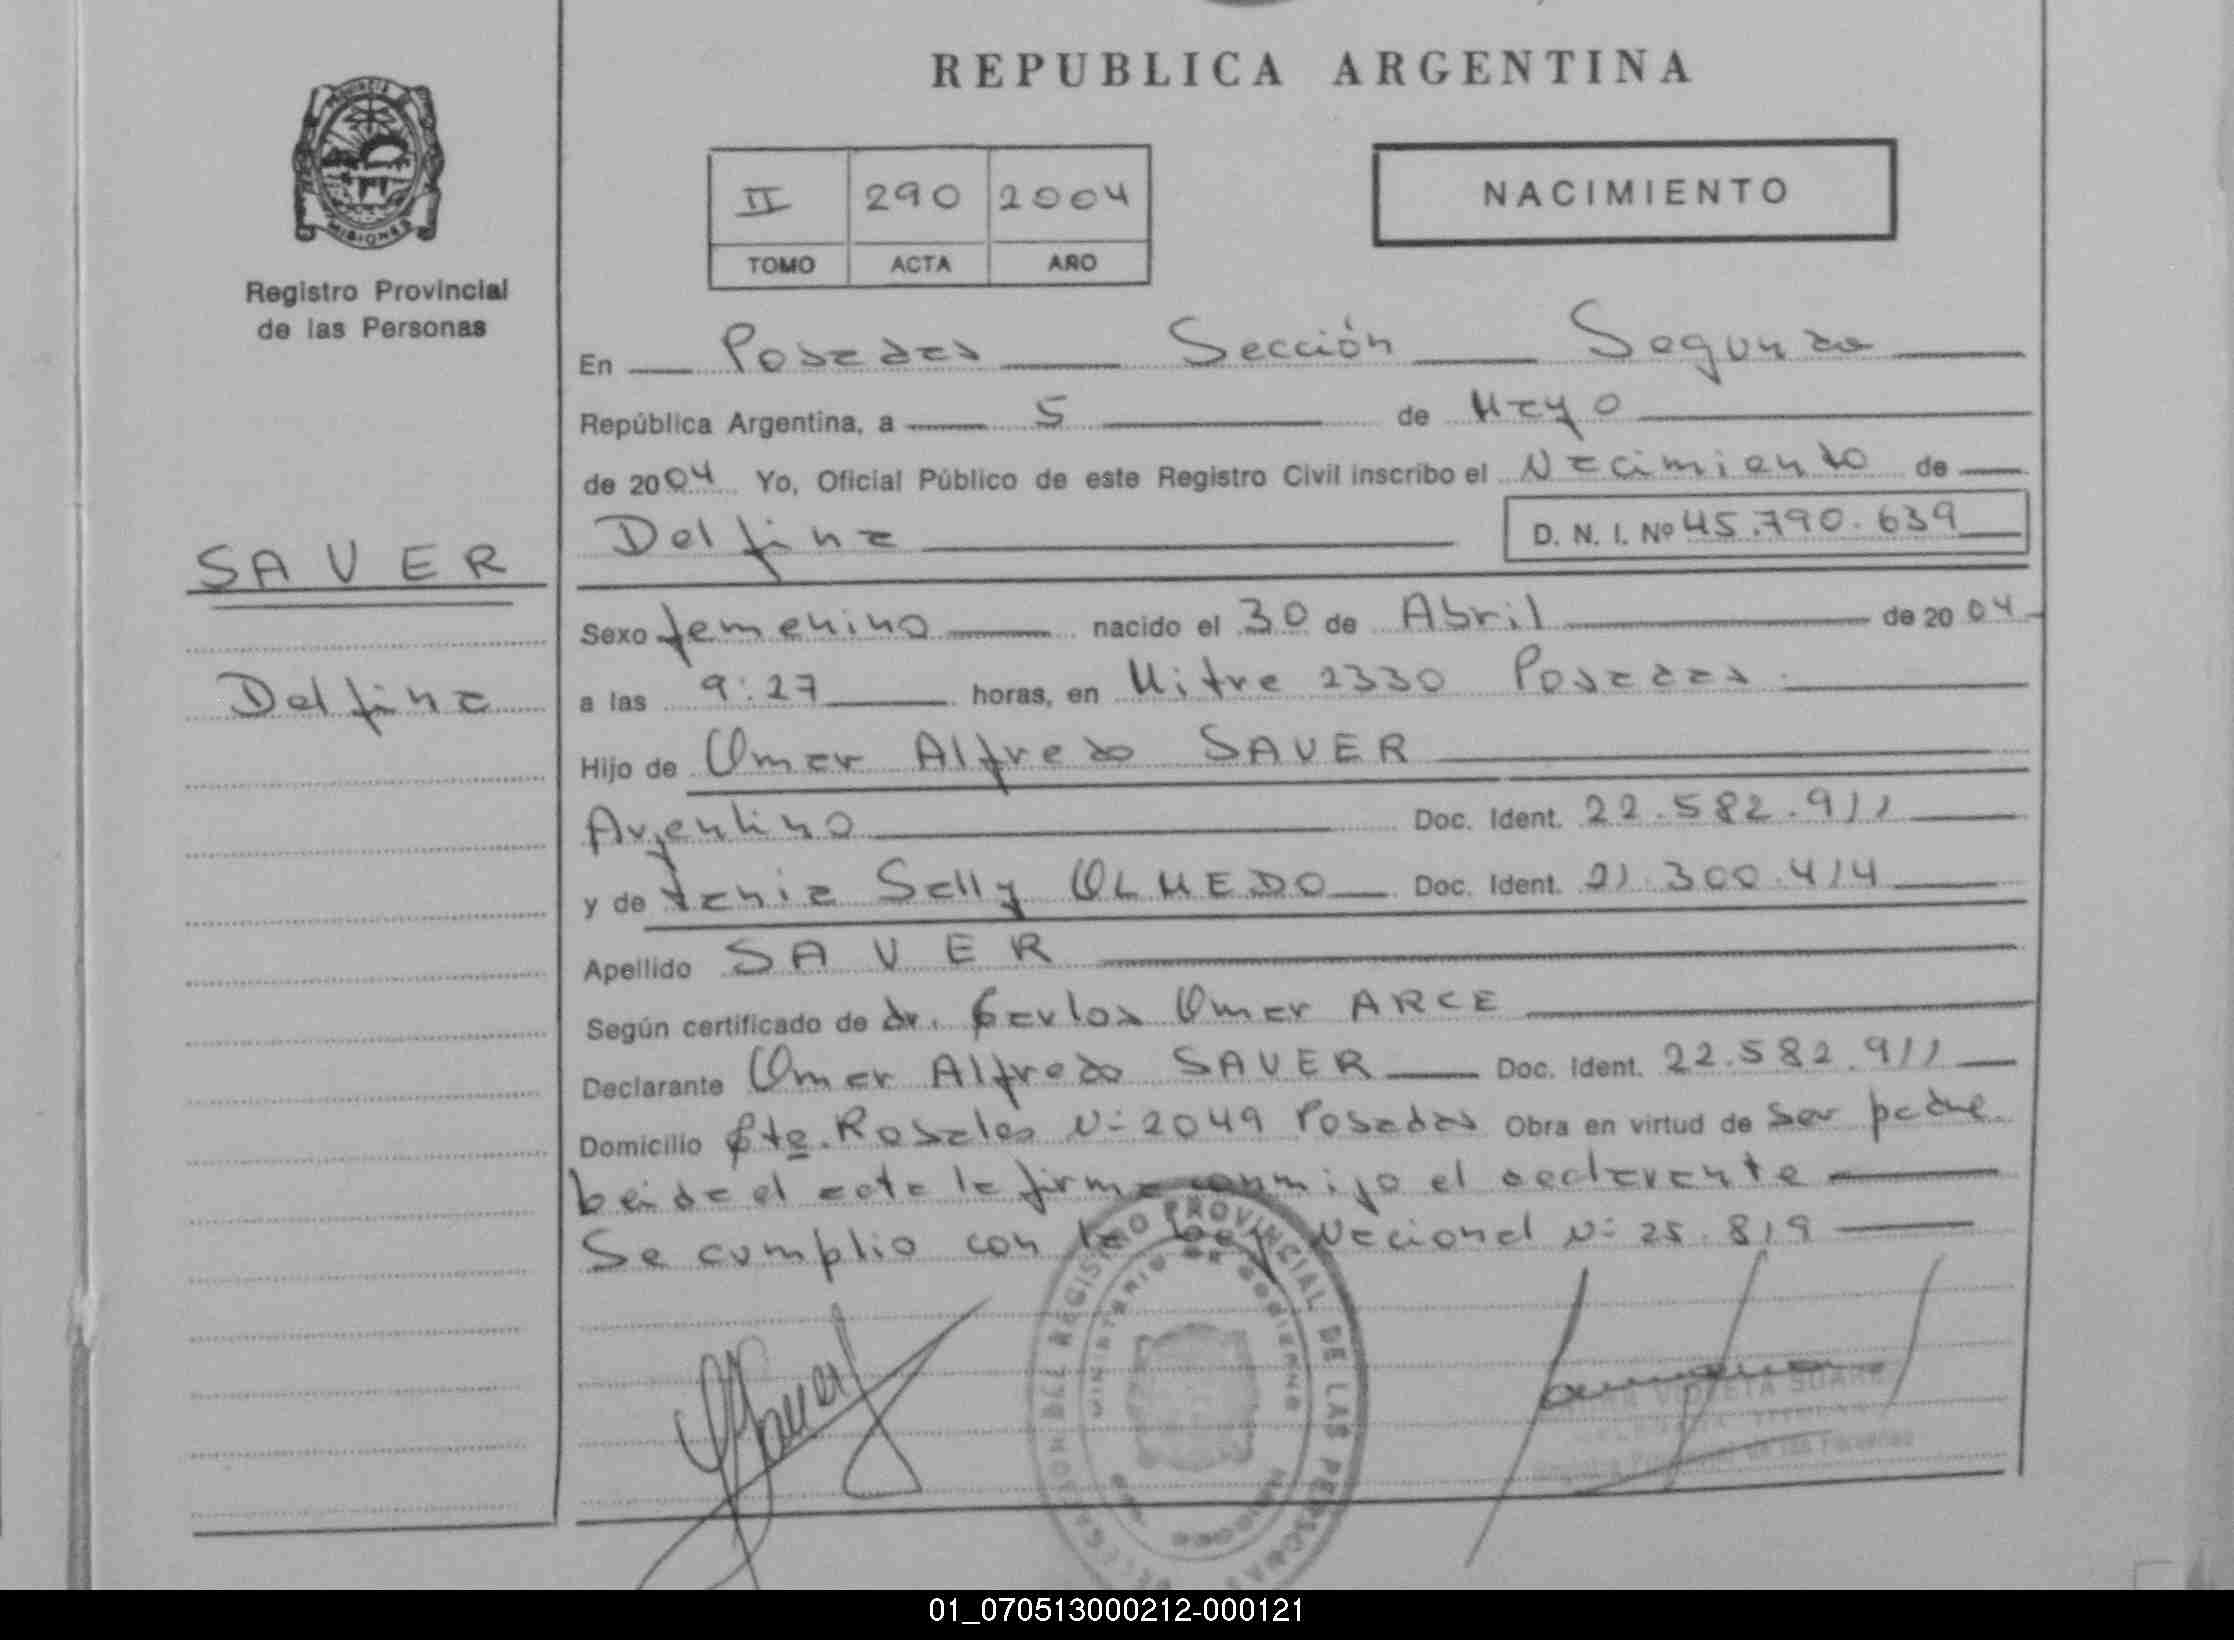 REPUBLICA ARGENTINA
PROVINCIA DE
MISIONES
Registro Provincial
de las Personas
II 290 2004
TOMO ACTA AÑO
NACIMIENTO
En Posadas Sección Segunda
República Argentina, a 5 de Mayo
de 2004 Yo, Oficial Público de este Registro Civil inscribo el Nacimiento de
Delfina D. N. I. Nº 45.790.639
SAVER
Delfina
Sexo femenino nacido el 30 de Abril de 2004
a las 9:27 horas, en Mitre 2330 Posadas.
Hijo de Omar Alfredo SAVER
Argentino Doc. Ident. 22.582.911
y de Tania Sally OLMEDO Doc. Ident. 21.300.414
Apellido SAVER
Según certificado de dr. Carlos Omar ARCE
Declarante Omar Alfredo SAVER Doc. Ident. 22.582.911
Domicilio Cte. Rosales Nº 2049 Posadas Obra en virtud de ser padre
leída el acta la firma conmigo el declarante
Se cumplio con la Ley Nacional Nº 25.819
REGISTRO PROVINCIAL DE LAS PERSONAS
MINISTERIO DE GOBIERNO
VIOLETA
Registro Provincial de las Personas
01_070513000212-000121